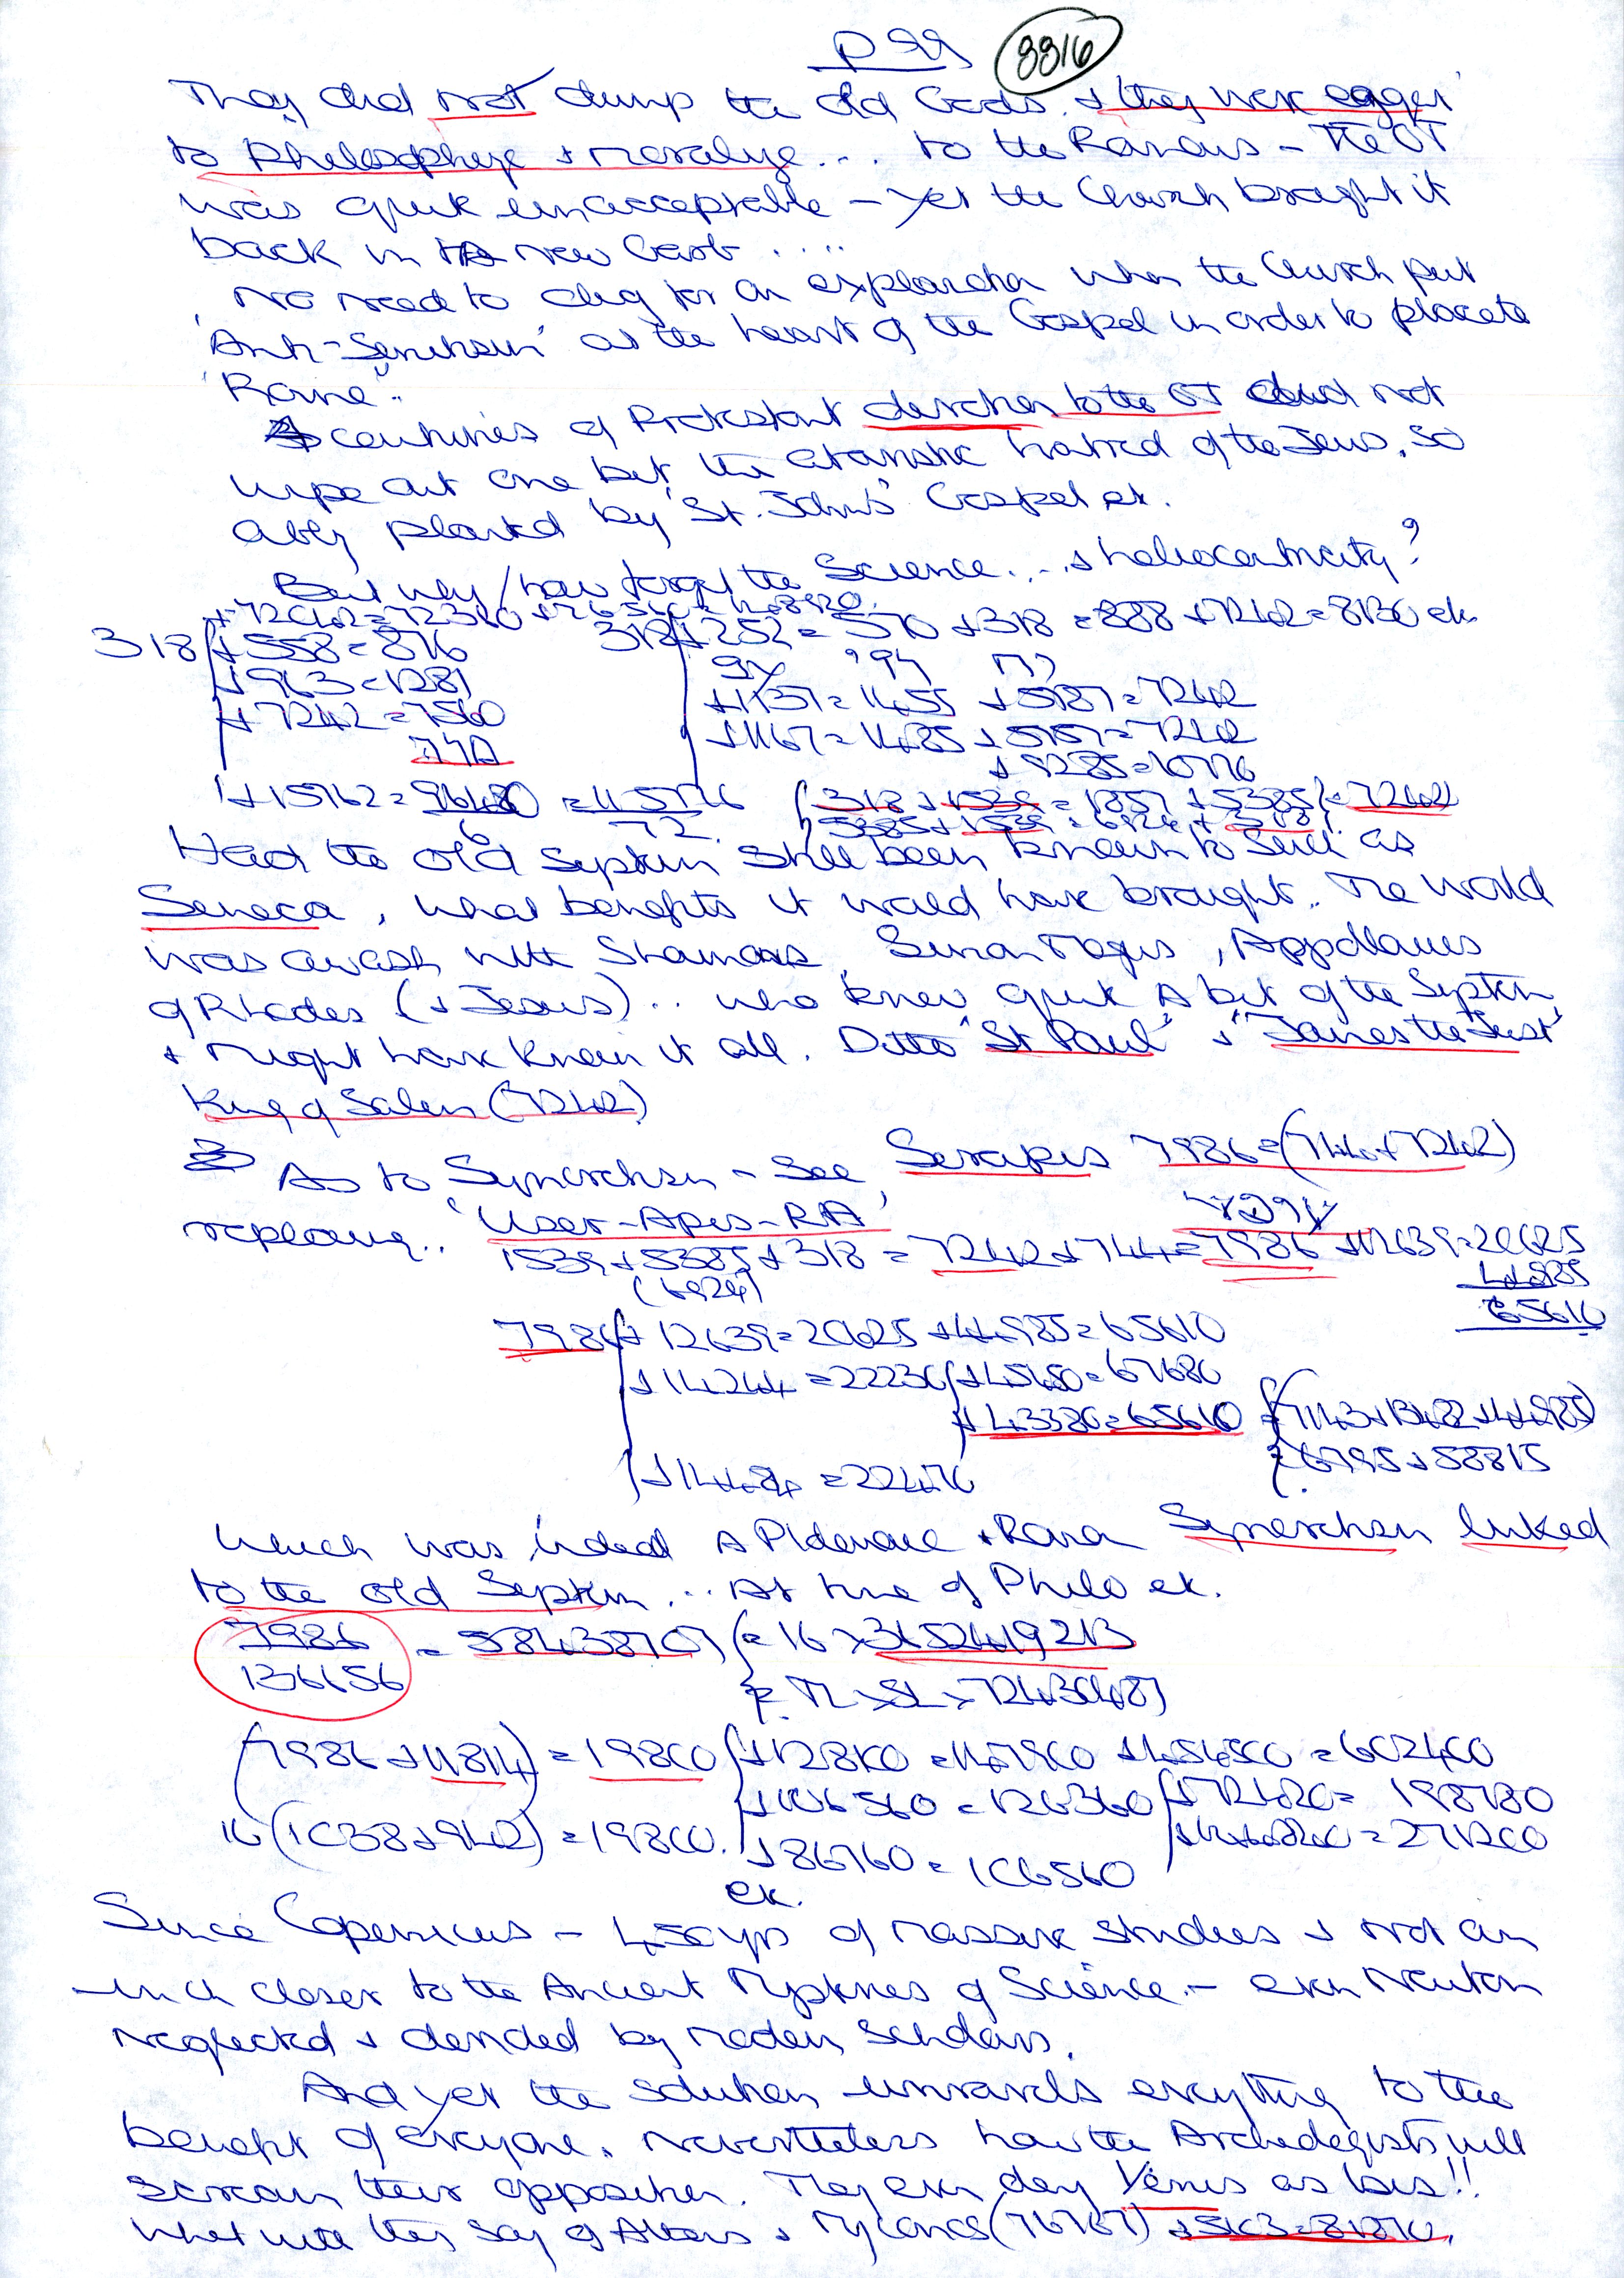 p 99 8816
They did not dump the old Gods. & they were eager
to philosophize & moralize... to the Romans - The OT
was quite unacceptable - yet the Church brought it
back in new Garb .....
No need to dig for an explanation when the Church put
'Anti-Semitism' at the heart of the Gospel in order to placate
'Rome'.
centuries of Protestant devotion to the OT did not
wipe out one bit the atavistic hatred of the Jews, so
ably planted by 'St. John's' Gospel etc.
But why/how forget the Science... & heliocentricity?
318 + 558 = 876 318 + 252 = 570 + 318 = 888 + 7242 = 8130 etc
+ 963 = 1281
+ 7242 = 7560 + 1137 = 1455 + 5787 = 7242
+ 1167 = 1485 + 5757 = 7242
+ 9285 = 10770
(318 + 1539 = 1857 + 5385) = 7242
5385 + 1539 = 6924 + 318
Had the old System still been known to such as
Seneca, what benefits it would have brought. The World
was awash with Shamans, Simon Magus, Appolonius
of Rhodes (& Jesus) .. who knew quite a bit of the System
& might have known it all. Ditto 'St Paul' & 'James the Just'
King of Salem (7242)
As to Syncretism - see Serapis 7986 = (744 + 7242)
replacing.. 'User-Apis-RA'
1539 + 5385 + 318 = 7242 + 744 = 7986 + 12639 = 20625
(6924) 44985
65610
7986 + 12639 = 20625 + 44985 = 65610
+ 14244 = 22230 + 45450 = 67680
+ 43380 = 65610 = (7143 + 13482 + 44985)
= 6795 + 58815
+ 14484 = 22470
which was indeed a Ptolemaic & Roman Syncretism linked
to the old System ... At time of Philo etc.
7986
136656 = 58438707 = 16 × 3652419213
(7986 + 11814) = 19800 + 128100 = 147900 + 454500 = 602400
+ 106560 = 126360 + 72420 = 198780
16 (1038 + 942) = 19800. + 86760 = 106560
etc.
Since Copernicus - 450 yrs of massive studies & not an
inch closer to the Ancient Mysteries of Science - even Newton
neglected & derided by modern scholars.
And yet the solution unravels everything to the
benefit of everyone. Nevertheless how the Archeologists will
scream their opposition. They even deny Venus as Isis!!
What will they say of Athens & Mycenae (76767) + 5103 = 81870.